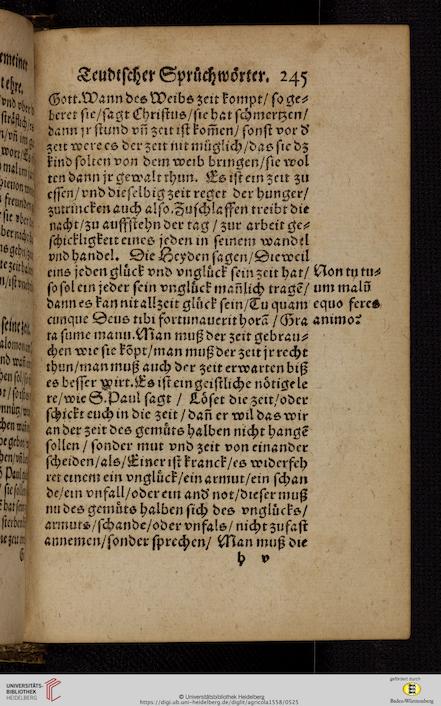 Teudtscher Sprüchwörter. 245
Gott. Wann des Weibs zeit kompt/ so ge=
beret sie/ sagt Christus/ sie hat schmertzen/
dann jr stund vñ zeit ist kom̃en/ sonst vor d̕
zeit were es der zeit nit müglich/ das sie dz
kind solten von dem weib bringen/ sie wol
ten dann jr gewalt thun. Es ist ein zeit zu
essen/ vnd dieselbig zeit reget der hunger/
zutrincken auch also. Zuschlaffen treibt die
nacht/ zu auffstehn der tag/ zur arbeit ge=
schickligkeit eines jeden in seinem wandel
vnd handel. Die Heyden sagen/ Dieweil
eins jeden glück vnd vnglück sein zeit hat/
so sol ein jeder sein vnglück mãnlich tragẽ/
dann es kan nit allzeit glück sein/ Tu quam
cunque Deus tibi fortunauerit horã/ Gra
ta sume manu. Man muß der zeit gebrau=
chen wie sie kõpt/ man muß der zeit jr recht
thun/ man muß auch der zeit erwarten biß
es besser wirt. Es ist ein geistliche nötige le
re/ wie S. Paul sagt/ Löset die zeit/ oder
schickt euch in die zeit/ dañ er wil das wir
an der zeit des gemüts halben nicht hangẽ
sollen/ sonder mut vnd zeit von einander
scheiden/ als/ Einer ist kranck/ es widerfeh
ret einem ein vnglück/ ein armut/ ein schan
de/ ein vnfall/ oder ein and̕ not/ dieser muß
nu des gemüts halben sich des vnglücks/
armuts/ schande/ oder vnfals/ nicht zu fast
annemen/ sonder sprechen/ Man muß die
h v
Non tu tu=
um malũ
equo feres
animo?
UNIVERSITÄTS-
BIBLIOTHEK
HEIDELBERG
© Universitätsbibliothek Heidelberg
https://digi.ub.uni-heidelberg.de/diglit/agricola1558/0525
gefördert durch
Baden-Württemberg